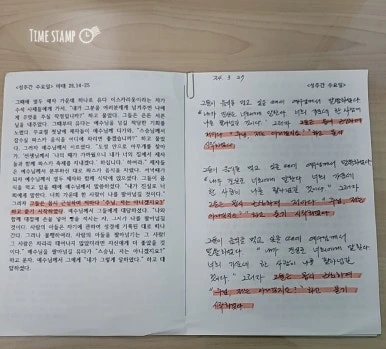 TIME STAMP
<성주간 수요일> 마태 26,14-25
그때에 열두 제자 가운데 하나로 유다 이스카리옷이라는 자가
수석 사제들에게 가서, "내가 그분을 여러분에게 넘겨주면 나에
게 무엇을 주실 작정입니까?" 하고 물었다. 그들은 은돈 서른
닢을 내주었다. 그때부터 유다는 예수님을 넘길 적당한 기회를
노렸다. 무교절 첫날에 제자들이 예수님께 다가와, "스승님께서
잡수실 파스카 음식을 어디에 차리면 좋겠습니까?" 하고 물었
다. 그러자 예수님께서 이르셨다. "도성 안으로 아무개를 찾아
가, '선생님께서 '나의 때가 가까웠으니 내가 너의 집에서 제자
들과 함께 파스카 축제를 지내겠다.' 하십니다.' 하여라." 제자들
은 예수님께서 분부하신 대로 파스카 음식을 차렸다. 저녁때가
되자 예수님께서 열두 제자와 함께 식탁에 앉으셨다. 그들이 음
식을 먹고 있을 때에 예수님께서 말씀하셨다. "내가 진실로 너
희에게 말한다. 너희 가운데 한 사람이 나를 팔아넘길 것이다."
그러자 그들은 몹시 근심하며 저마다 "주님, 저는 아니겠지요?"
하고 묻기 시작하였다. 예수님께서 그들에게 대답하셨다. "나와
함께 대접에 손을 넣어 빵을 적시는 자, 그자가 나를 팔아넘길
것이다. 사람의 아들은 자기에 관하여 성경에 기록된 대로 떠나
간다. 그러나 불행하여라, 사람의 아들을 팔아넘기는 그 사람!
그 사람은 차라리 태어나지 않았더라면 자신에게 더 좋았을 것
이다." 예수님을 팔아넘길 유다가 "스승님, 저는 아니겠지요?"
하고 묻자, 예수님께서 그에게 "네가 그렇게 말하였다." 하고 대
답하셨다.
<성주간 수요일>
그들이 음식을 먹고 있을 때에 예수님께서 말씀하셨다
"내가 진실로 너희에게 말한다 너희 가운데 한 사람이
나를 팔아넘길 것이다." 그러자 그들은 몹시 근심하며
저마다 "주님, 저는 아니겠지요?" 하고 묻기
시작하였다
그들이 음식을 먹고 있을 때에 예수님께서 말씀하셨다
"내가 진실로 너희에게 말한다 너희 가운데
한 사람이 나를 팔아넘길 것이다" 그러자
그들은 몹시 근심하며 저마다 "주님, 저는
아니겠지요?" 하고 묻기 시작하였다
그들이 음식을 먹고 있을 때에 예수님께서
말씀하셨다 "내가 진실로 너희에게 말한다
너희 가운데 한 사람이 나를 팔아넘길
것이다" 그러자 그들은 몹시 근심하며
"주님, 저는 아니겠지요?" 하고 묻기
시작하였다